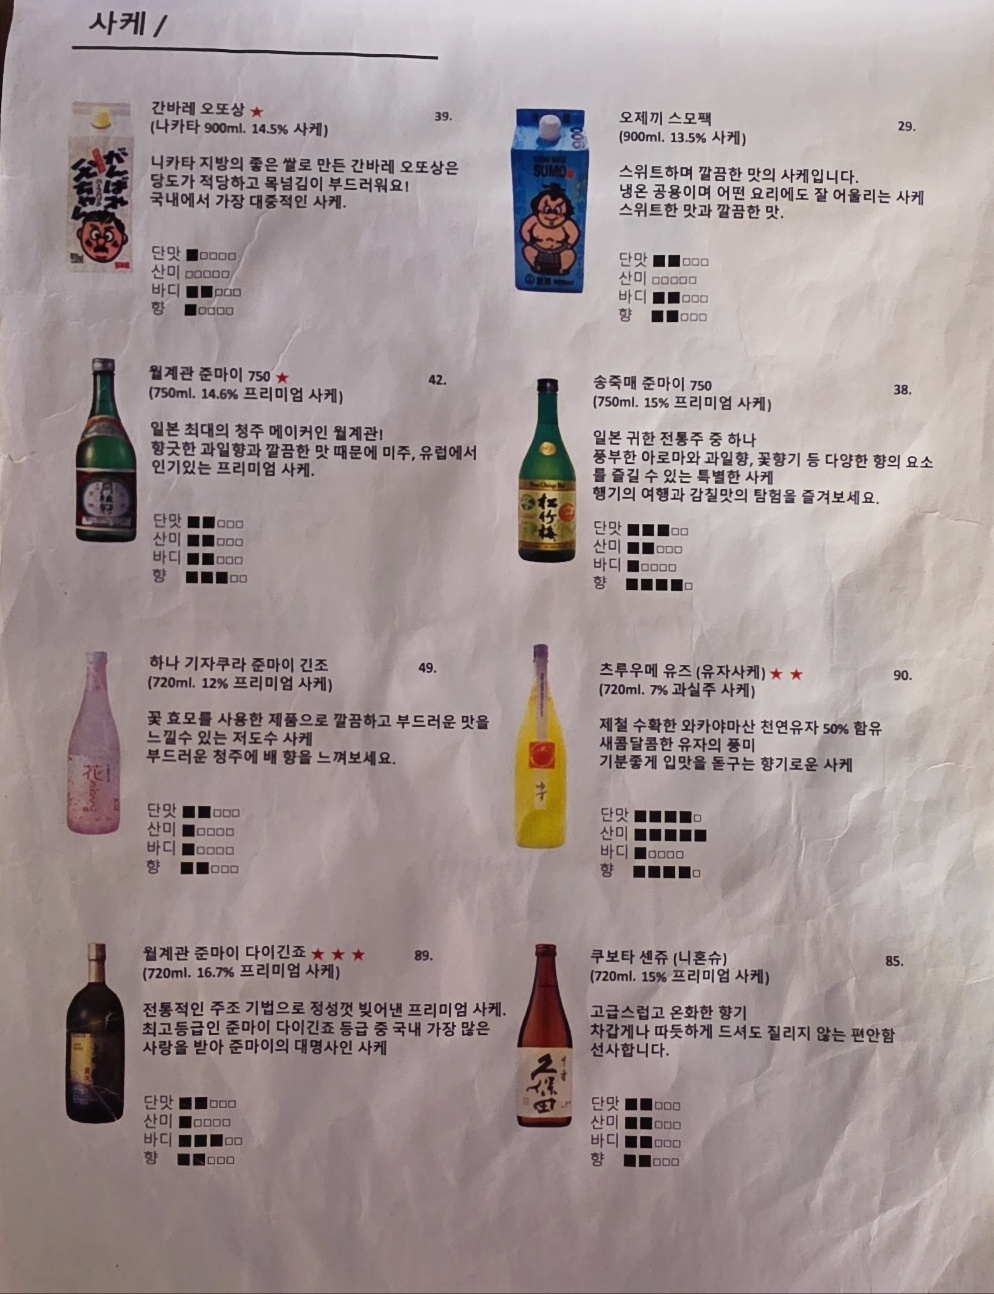 사케 /
간바레 오또상 ★ 39.
(나카타 900ml. 14.5% 사케)
니카타 지방의 좋은 쌀로 만든 간바레 오또상은
당도가 적당하고 목넘김이 부드러워요!
국내에서 가장 대중적인 사케.
단맛 ■□□□□
산미 □□□□□
바디 ■■□□□
향 ■□□□□
오제끼 스모팩 29.
(900ml. 13.5% 사케)
스위트하며 깔끔한 맛의 사케입니다.
냉온 공용이며 어떤 요리에도 잘 어울리는 사케
스위트한 맛과 깔끔한 맛.
단맛 ■■□□□
산미 □□□□□
바디 ■■□□□
향 ■■□□□
SUMO
월계관 준마이 750 ★ 42.
(750ml. 14.6% 프리미엄 사케)
일본 최대의 청주 메이커인 월계관!
향긋한 과일향과 깔끔한 맛 때문에 미주, 유럽에서
인기있는 프리미엄 사케.
단맛 ■■□□□
산미 ■■□□□
바디 ■■□□□
향 ■■■□□
송죽매 준마이 750 38.
(750ml. 15% 프리미엄 사케)
일본 귀한 전통주 중 하나
풍부한 아로마와 과일향, 꽃향기 등 다양한 향의 요소
를 즐길 수 있는 특별한 사케
행기의 여행과 감칠맛의 탐험을 즐겨보세요.
단맛 ■■■□□
산미 ■■□□□
바디 ■□□□□
향 ■■■■□
松竹梅
하나 기자쿠라 준마이 긴조 49.
(720ml. 12% 프리미엄 사케)
꽃 효모를 사용한 제품으로 깔끔하고 부드러운 맛을
느낄수 있는 저도수 사케
부드러운 청주에 배 향을 느껴보세요.
단맛 ■■□□□
산미 ■□□□□
바디 ■□□□□
향 ■■□□□
花
츠루우메 유즈 (유자사케) ★ ★ 90.
(720ml. 7% 과실주 사케)
제철 수확한 와카야마산 천연유자 50% 함유
새콤달콤한 유자의 풍미
기분좋게 입맛을 돋구는 향기로운 사케
단맛 ■■■■□
산미 ■■■■■
바디 ■□□□□
향 ■■■■□
월계관 준마이 다이긴죠 ★ ★ ★ 89.
(720ml. 16.7% 프리미엄 사케)
전통적인 주조 기법으로 정성껏 빚어낸 프리미엄 사케.
최고등급인 준마이 다이긴죠 등급 중 국내 가장 많은
사랑을 받아 준마이의 대명사인 사케
단맛 ■■□□□
산미 ■□□□□
바디 ■■■□□
향 ■■□□□
쿠보타 센쥬 (니혼슈) 85.
(720ml. 15% 프리미엄 사케)
고급스럽고 온화한 향기
차갑게나 따듯하게 드셔도 질리지 않는 편안함
선사합니다.
단맛 ■■□□□
산미 ■■□□□
바디 ■■□□□
향 ■■□□□
久保田